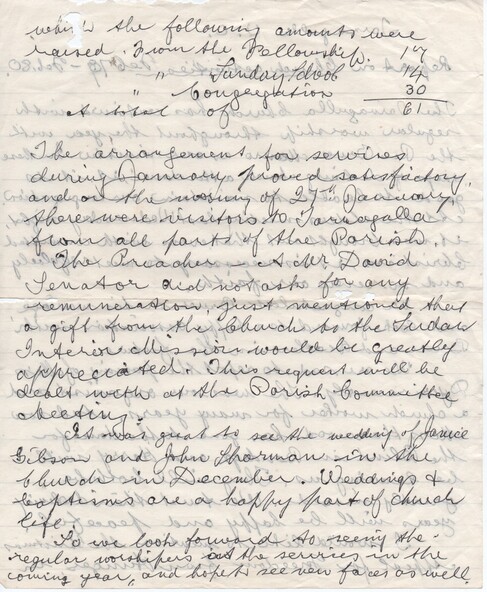 which the following amounts were
raised. From the Fellowship. 17
" Sunday School 14
" Congregation 30
A total of 61
The arrangement for services
during January proved satisfactory,
and on the morning of 27th January,
there were visitors to Tarnagulla
from all parts of the Parish.
The Preacher - A Mr David
Senator did not ask for any
remuneration, just mentioned that
a gift from the Church to the Sudan
Interior Mission would be greatly
appreciated. This request will be
dealt with at the Parish Committee
Meeting.
It was great to see the wedding of Janice
Gibson and John Sharman in the
Church in December. Weddings &
Baptisms are a happy part of church
life.
So we look forward to seeing the
regular worshipers at the services in the
coming year, and hope to see new faces as well.